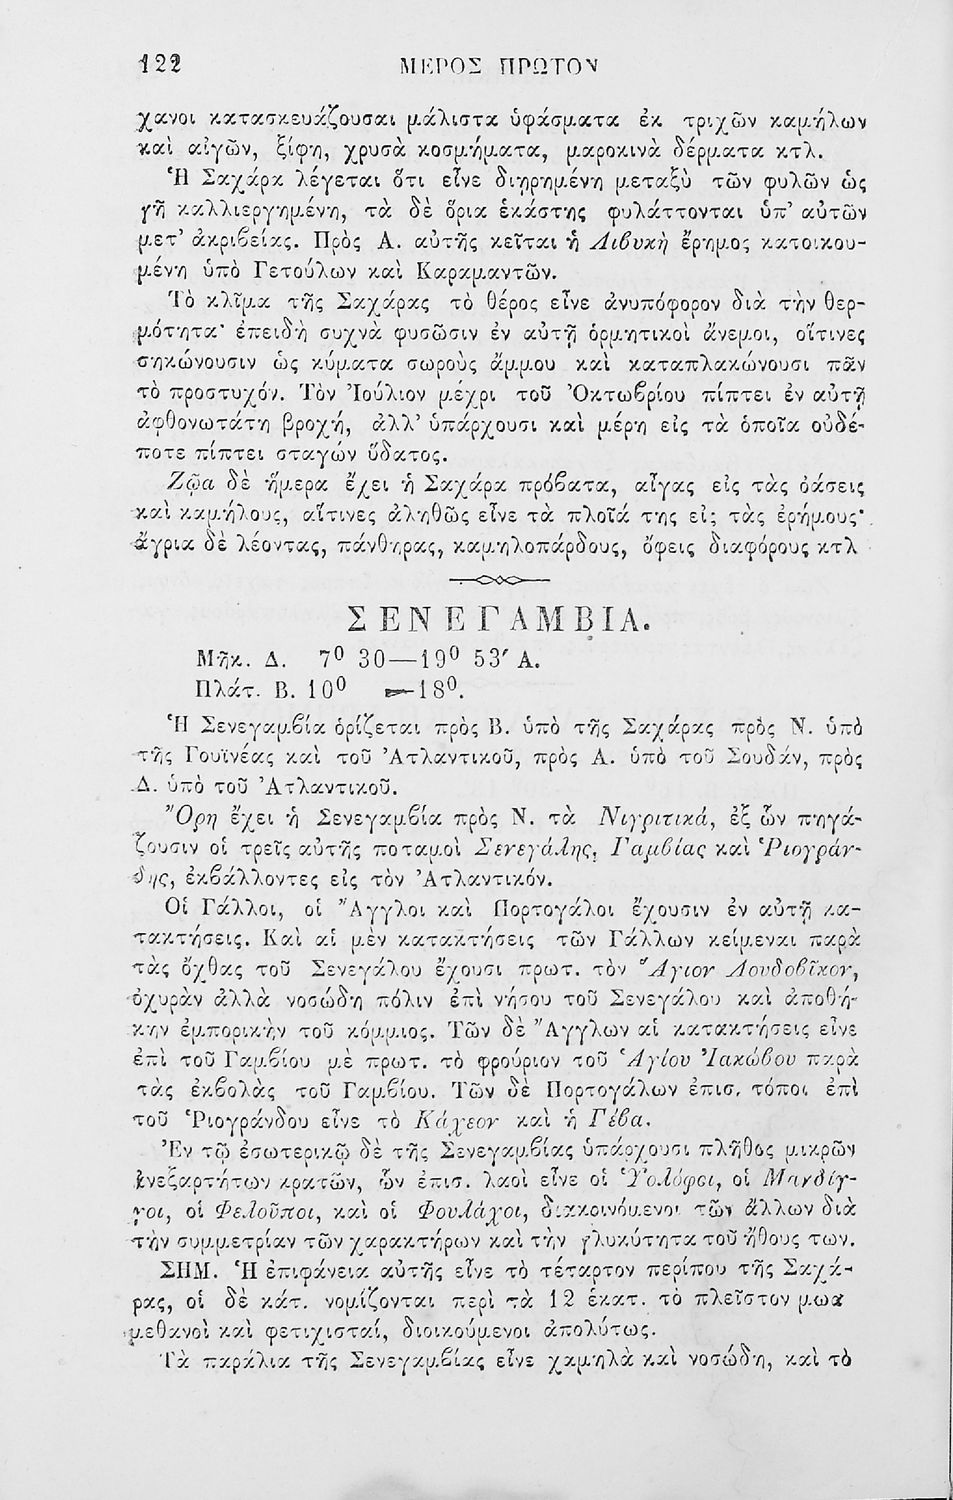 122 ΜΕΡΟΣ ΠΡΩΤΟΝ
χανοι κατασκευάζουσαι μάλιστα ὑφάσματα ἐκ τριχῶν καμήλων
καὶ αἰγῶν, ξίφη, χρυσᾶ κοσμήματα, μαροκινὰ δέρματα κτλ.
Ἡ Σαχάρα λέγεται ὅτι εἶνε διῃρημένη μεταξὺ τῶν φυλῶν ὡς
γῆ καλλιεργημένη, τὰ δὲ ὅρια ἑκάστης φυλάττονται ὑπ’ αὐτῶν
μετ’ ἀκριβείας. Πρὸς Α. αὐτῆς κεῖται ἡ Λιβυκὴ ἔρημος κατοικου-
μένη ὑπὸ Γετούλων καὶ Καραμαντῶν.
Τὸ κλῖμα τῆς Σαχάρας τὸ θέρος εἶνε ἀνυπόφορον διὰ τὴν θερ-
μότητα· ἐπειδὴ συχνὰ φυσῶσιν ἐν αὐτῇ ὁρμητικοὶ ἄνεμοι, οἵτινες
σηκώνουσιν ὡς κύματα σωροὺς ἄμμου καὶ καταπλακώνουσι πᾶν
τὸ προστυχόν. Τὸν Ἰούλιον μέχρι τοῦ Ὀκτωβρίου πίπτει ἐν αὐτῇ
ἀφθονωτάτη βροχή, ἀλλ’ ὑπάρχουσι καὶ μέρη εἰς τὰ ὁποῖα οὐδέ-
ποτε πίπτει σταγὼν ὕδατος.
Ζῷα δὲ ἥμερα ἔχει ἡ Σαχάρα πρόβατα, αἶγας εἰς τὰς ὀάσεις
καὶ καμήλους, αἵτινες ἀληθῶς εἶνε τὰ πλοῖά της εἰς τὰς ἐρήμους·
ἄγρια δὲ λέοντας, πάνθηρας, καμηλοπάρδους, ὄφεις διαφόρους κτλ
ΣΕΝΕΓΑΜΒΙΑ.
Μῆκ. Δ. 7⁰ 30—19⁰ 53′ Α.
Πλάτ. Β. 10⁰ —18⁰.
Ἡ Σενεγαμβία ὁρίζεται πρὸς Β. ὑπὸ τῆς Σαχάρας πρὸς Ν. ὑπὸ
τῆς Γουϊνέας καὶ τοῦ Ἀτλαντικοῦ, πρὸς Α. ὑπὸ τοῦ Σουδάν, πρὸς
Δ. ὑπὸ τοῦ Ἀτλαντικοῦ.
Ὄρη ἔχει ἡ Σενεγαμβία πρὸς Ν. τὰ Νιγριτικά, ἐξ ὧν πηγά-
ζουσιν οἱ τρεῖς αὐτῆς ποταμοὶ Σενεγάλης, Γαμβίας καὶ Ῥιογράν-
δης, ἐκβάλλοντες εἰς τὸν Ἀτλαντικόν.
Οἱ Γάλλοι, οἱ Ἄγγλοι καὶ Πορτογάλοι ἔχουσιν ἐν αὐτῇ κα-
τακτήσεις. Καὶ αἱ μὲν κατακτήσεις τῶν Γάλλων κείμεναι παρὰ
τὰς ὄχθας τοῦ Σενεγάλου ἔχουσι πρωτ. τὸν Ἅγιον Λουδοβῖκον,
ὀχυρὰν ἀλλὰ νοσώδη πόλιν ἐπὶ νήσου τοῦ Σενεγάλου καὶ ἀποθή-
κην ἐμπορικὴν τοῦ κόμμιος. Τῶν δὲ Ἄγγλων αἱ κατακτήσεις εἶνε
ἐπὶ τοῦ Γαμβίου μὲ πρωτ. τὸ φρούριον τοῦ Ἁγίου Ἰακώβου παρὰ
τὰς ἐκβολὰς τοῦ Γαμβίου. Τῶν δὲ Πορτογάλων ἐπισ. τόποι ἐπὶ
τοῦ Ῥιογράνδου εἶνε τὸ Κάχεον καὶ ἡ Γέβα.
Ἐν τῷ ἐσωτερικῷ δὲ τῆς Σενεγαμβίας ὑπάρχουσι πλῆθος μικρῶν
ἀνεξαρτήτων κρατῶν, ὧν ἐπισ. λαοὶ εἶνε οἱ Ὑολόφοι, οἱ Μανδίγ-
γοι, οἱ Φελοῦποι, καὶ οἱ Φουλάχοι, διακοινόμενοι τῶν ἄλλων διὰ
τὴν συμμετρίαν τῶν χαρακτήρων καὶ τὴν γλυκύτητα τοῦ ἤθους των.
ΣΗΜ. Ἡ ἐπιφάνεια αὐτῆς εἶνε τὸ τέταρτον περίπου τῆς Σαχά-
ρας, οἱ δὲ κάτ. νομίζονται περὶ τὰ 12 ἑκατ. τὸ πλεῖστον μωα
μεθανοὶ καὶ φετιχισταί, διοικούμενοι ἀπολύτως.
Τὰ παράλια τῆς Σενεγαμβίας εἶνε χαμηλὰ καὶ νοσώδη, καὶ τὸ